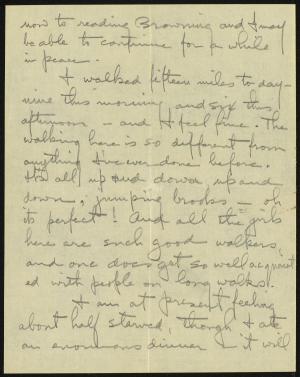 now to reading Browning and I may
be able to continue for a while
in peace.
I walked fifteen miles to-day-
nine this morning, and six this
afternoon - and I feel fine. The
walking here is so different from
anything I've ever done before.
It's all up and down, up and
down, jumping brooks - oh
its perfect! And all the girls
here are such good walkers,
and one does get so well acquaint
ed with people on long walks.
I am at present feeling
about half starved, though I ate
an enormous dinner - it will